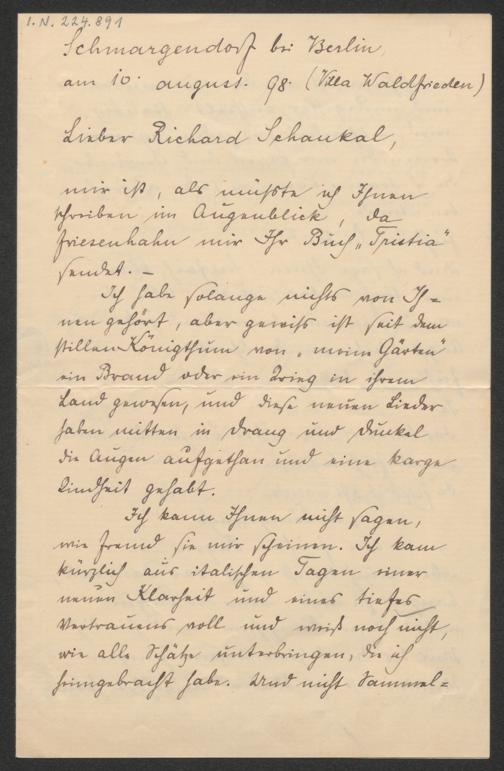 I.N. 224.891
Schmargendorf bei Berlin,
am 10. august. 98. (Villa Waldfrieden)
Lieber Richard Schaukal,
mir ist, als müßte ich Ihnen
schreiben im Augenblick, da
Friesenhahn mir Ihr Buch „Tristia"
sendet. –
Ich habe solange nichts von Ih=
nen gehört, aber gewiß ist seit dem
stillen Königthum von „meine Gärten"
ein Brand oder ein Krieg in ihrem
Land gewesen, und diese neuen Lieder
haben mitten in Drang und Dunkel
die Augen aufgethan und eine karge
Kindheit gehabt.
Ich kann Ihnen nicht sagen,
wie fremd sie mir scheinen. Ich kam
kürzlich aus italischen Tagen einer
neuen Klarheit und eines tiefes
Vertrauens voll und weiß noch nicht,
wie alle Schätze unterbringen, die ich
heimgebracht habe. Und nicht Sammel=